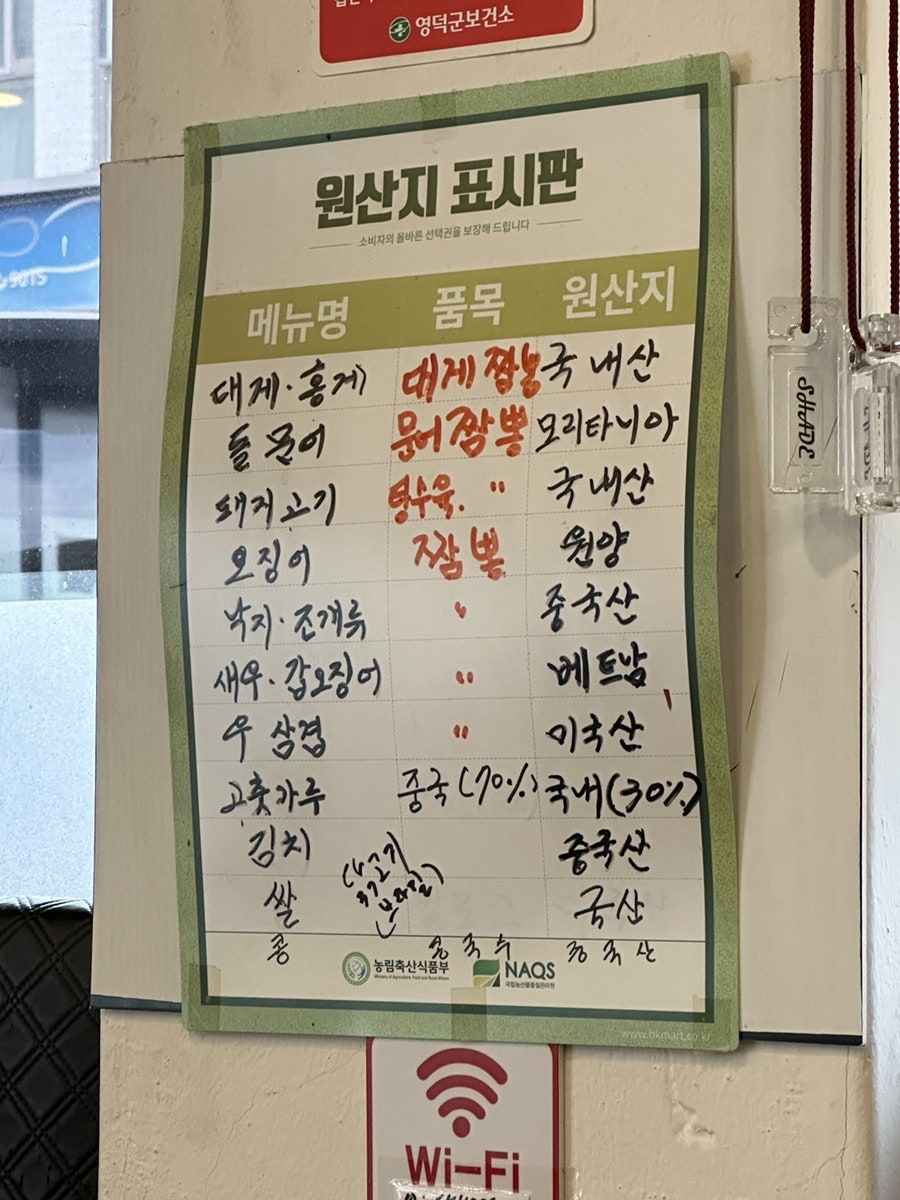 영덕군보건소
원산지 표시판
소비자의 올바른 선택권을 보장해 드립니다
메뉴명 품목 원산지
대게·홍게 대게짬뽕 국내산
돌문어 문어짬뽕 모리타니아
돼지고기 탕수육. " 국내산
오징어 짬뽕 원양
낙지·조개류 " 중국산
새우·갑오징어 " 베트남
우삼겹 " 미국산
고춧가루 중국(70%) 국내(30%)
김치 중국산
쌀 국산
콩 콩국수 중국산
농림축산식품부
Ministry of Agriculture, Food and Rural Affairs
NAQS
국립농산물품질관리원
www.hkmart.co.kr
Wi-Fi
SHADE
9015